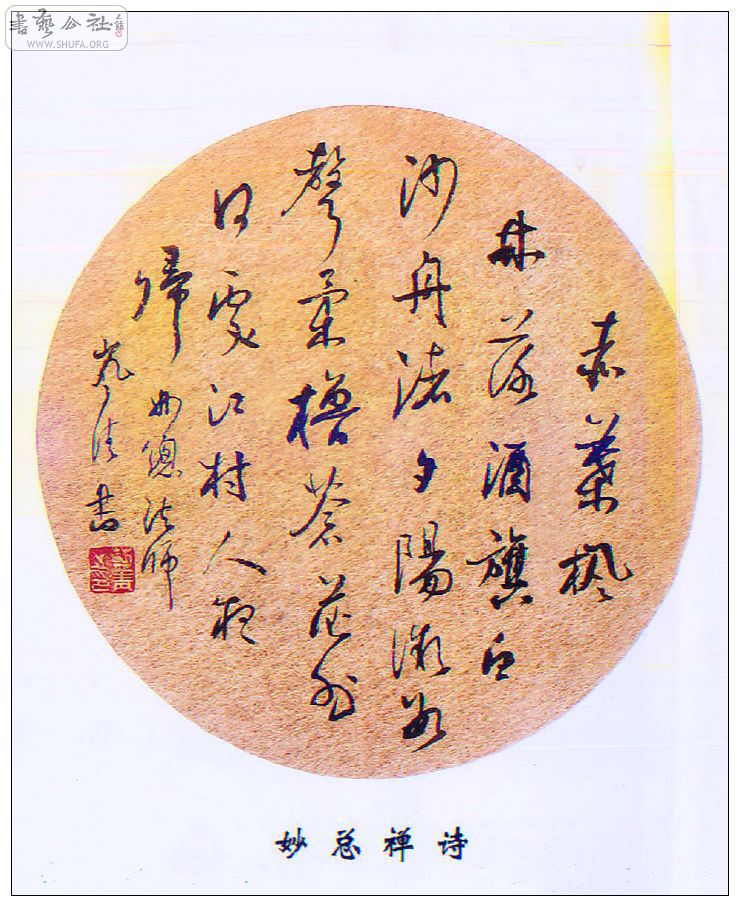 書藝公社
WWW.SHUFA.ORG
赤葉楓
林落酒旗白
沙舟渚夕陽微數
聲柔櫓蒼茫外
何處江村人夜
歸 妙總法師
書
妙总禅诗